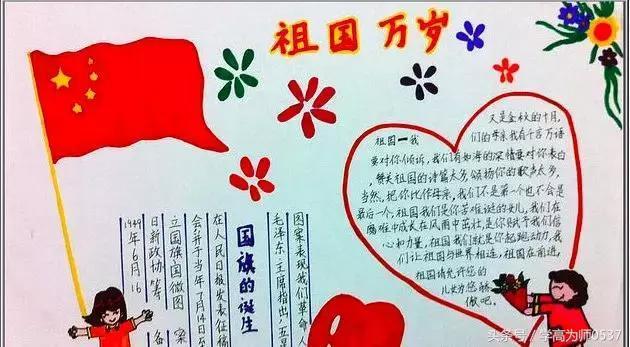 祖国万岁
又是金秋的十月,
祖国一我们的母亲我有千言万语
要对你倾诉,我们有如海的深情要对你表白
,赞美祖国的诗篇太多,颂扬你的歌声太多,
当然,把你比作母亲,我们不是第一个也不会是
最后一个,祖国我们是你苦难诞的女儿,我们在
难中成长在风雨中茁壮,是你赋予我们信
心和力量,祖国我们就是你起跑动力,我
们让祖国与世界相连,祖国在前进,
祖国请允许您的
儿女为您骄
傲吧。
图案表现我们革命人
毛泽东主席指出,五
国旗的诞生
在人民日报发表征稿
会并于当年7月14日至
立国旗国徽图案
日新政协筹备
1949年6月16
头条号 / 学高为师0537